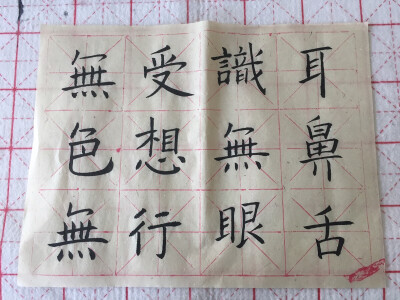 無色無
受想行
識無眼
耳鼻舌